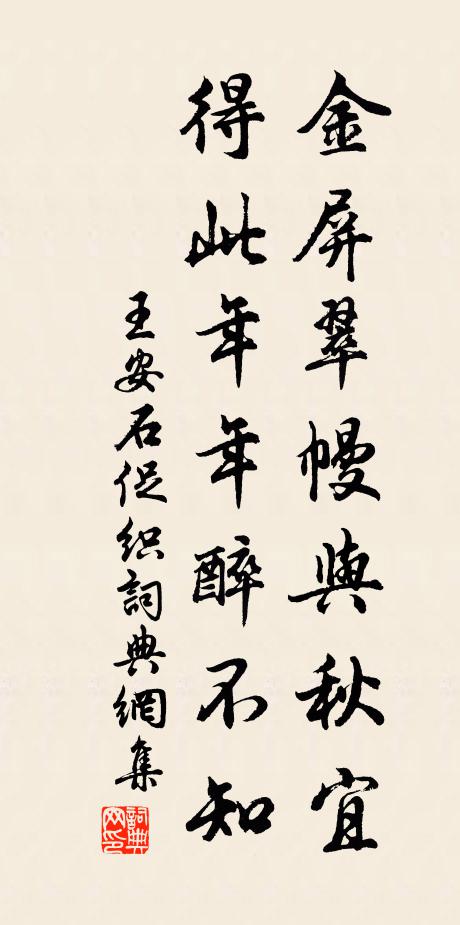 金屏翠幔與秋宜
得此年年醉不知
王安石促织詞典網集
詞典
网印